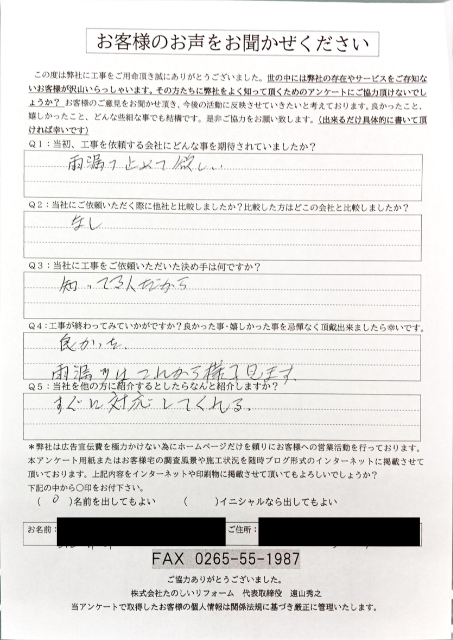 お客様のお声をお聞かせください
この度は弊社に工事をご用命頂き誠にありがとうございました。世の中には弊社の存在やサービスをご存知な
いお客様が沢山いらっしゃいます。その方たちに弊社をよく知って頂くためのアンケートにご協力頂けないでし
ょうか？ お客様のご意見をお聞かせ頂き、今後の活動に反映させていきたいと考えております。良かったこと、
嬉しかったこと、どんな些細な事でも結構です。是非ご協力をお願い致します。（出来るだけ具体的に書いて頂
ければ幸いです）
Q１：当初、工事を依頼する会社にどんな事を期待されていましたか？
雨漏り止めて欲しい
Q２：当社にご依頼いただく際に他社と比較しましたか？比較した方はどこの会社と比較しましたか？
なし
Q３：当社に工事をご依頼いただいた決め手は何ですか？
知ってる人だから
Q４：工事が終わってみていかがですか？良かった事・嬉しかった事を忌憚なく頂戴出来ましたら幸いです。
良かった。
雨漏りはこれから様子見ます。
Q５：当社を他の方に紹介するとしたらなんと紹介しますか？
すぐに対応してくれる。
＊弊社は広告宣伝費を極力かけない為にホームページだけを頼りにお客様への営業活動を行っております。
＊アンケート用紙またはお客様宅の調査風景や施工状況を随時ブログ形式のインターネットに掲載させて
頂いております。上記内容をインターネットや印刷物に掲載させて頂いてもよろしいでしょうか？
下記の中から○印をお付下さい。
（ ○ ）名前を出してもよい （ ）イニシャルなら出してもよい
お名前： ご住所：
FAX 0265-55-1987
ご協力ありがとうございました。
株式会社たのしいリフォーム 代表取締役 遠山秀之
当アンケートで取得したお客様の個人情報は関係法規に基づき厳正に管理いたします。